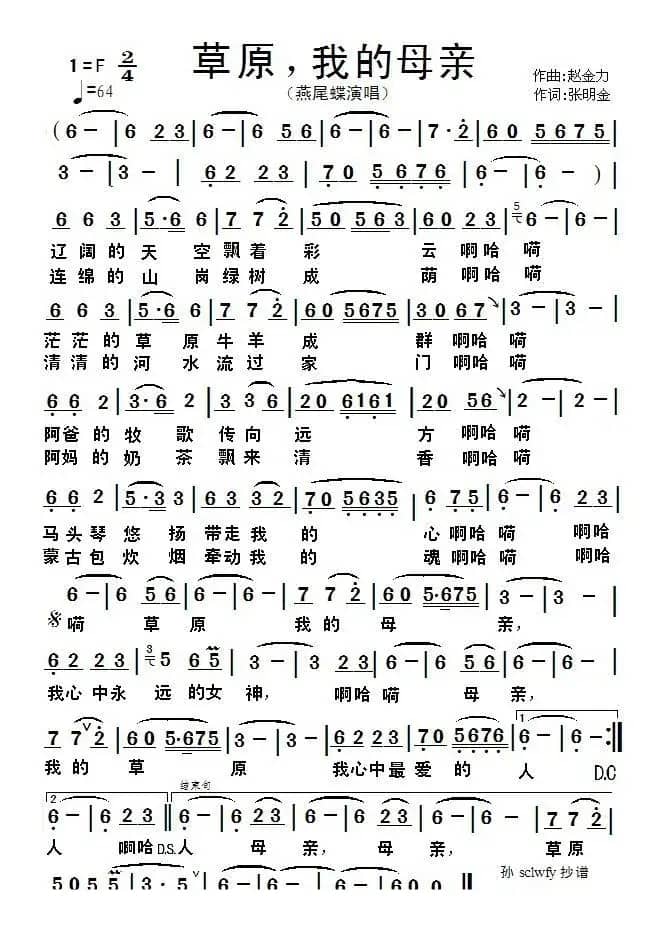 草原，我的母亲
1=F 2/4
♩=64
（燕尾蝶演唱）
作曲:赵金力
作词:张明金
(6－|6 23|6－|6 56|6－|6－|7·2|60 5675|
3－|3－|62 23|70 5676|6－|6－)|
6 6 3|5·6 6|7 7 2|50 563|60 23|6－|6－|
辽阔的天 空飘着 彩 云 啊哈 嗬
连绵的山 岗绿树 成 荫 啊哈 嗬
6 6 3|5·6 6|7 7 2|60 5675|30 67|3－|3－|
茫茫的草 原牛羊 成 群 啊哈 嗬
清清的河 水流过 家 门 啊哈 嗬
6 6 2|3·6 6|3 3 6|20 6161|20 56|2－|2－|
阿爸的牧 歌传向 远 方 啊哈 嗬
阿妈的奶 茶飘来 清 香 啊哈 嗬
6 6 2|5·3 3|63 32|70 5635|6 75|6－|6 23|
马头琴悠 扬带走我 的 心啊哈 嗬 啊哈
蒙古包炊 烟牵动我 的 魂啊哈 嗬 啊哈
6－|6 56|6－|6－|7 7 2|60 5·675|3－|3－|
嗬 草 原 我 的 母 亲，
62 23|5 65|3－|3－|23 6|6 56|6－|6－|
我心中永 远的女 神， 啊哈嗬 母 亲，
7 7 2|60 5·675|3－|3－|62 23|70 5676|6－:||
1.
我 的 草 原 我心中最 爱的 人 D.C
2.
结束句
6－|6 23||6－|6 23|6－|6 56|6－|6－|7 7 2|
人 啊哈 D.S. 人 母 亲， 母 亲， 草原
孙 sclwfy 抄谱